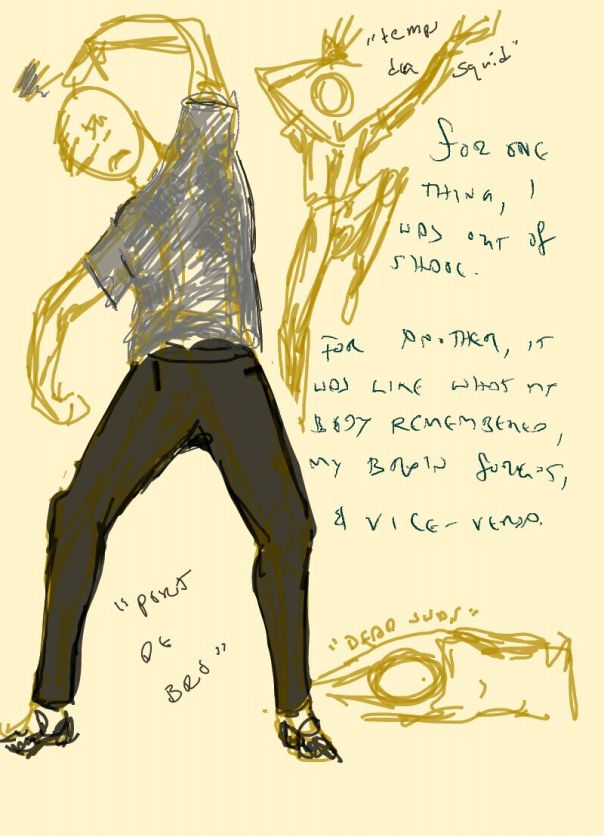 "temp
da squid"
FOR ONE
THING, I
WAS OUT OF
SHAPE.
FOR ANOTHER, IT
WAS LIKE WHAT MY
BODY REMEMBERED,
MY BRAIN FORGOT,
& VICE-VERSA.
"PORT
DE
BRA"
"DEAD